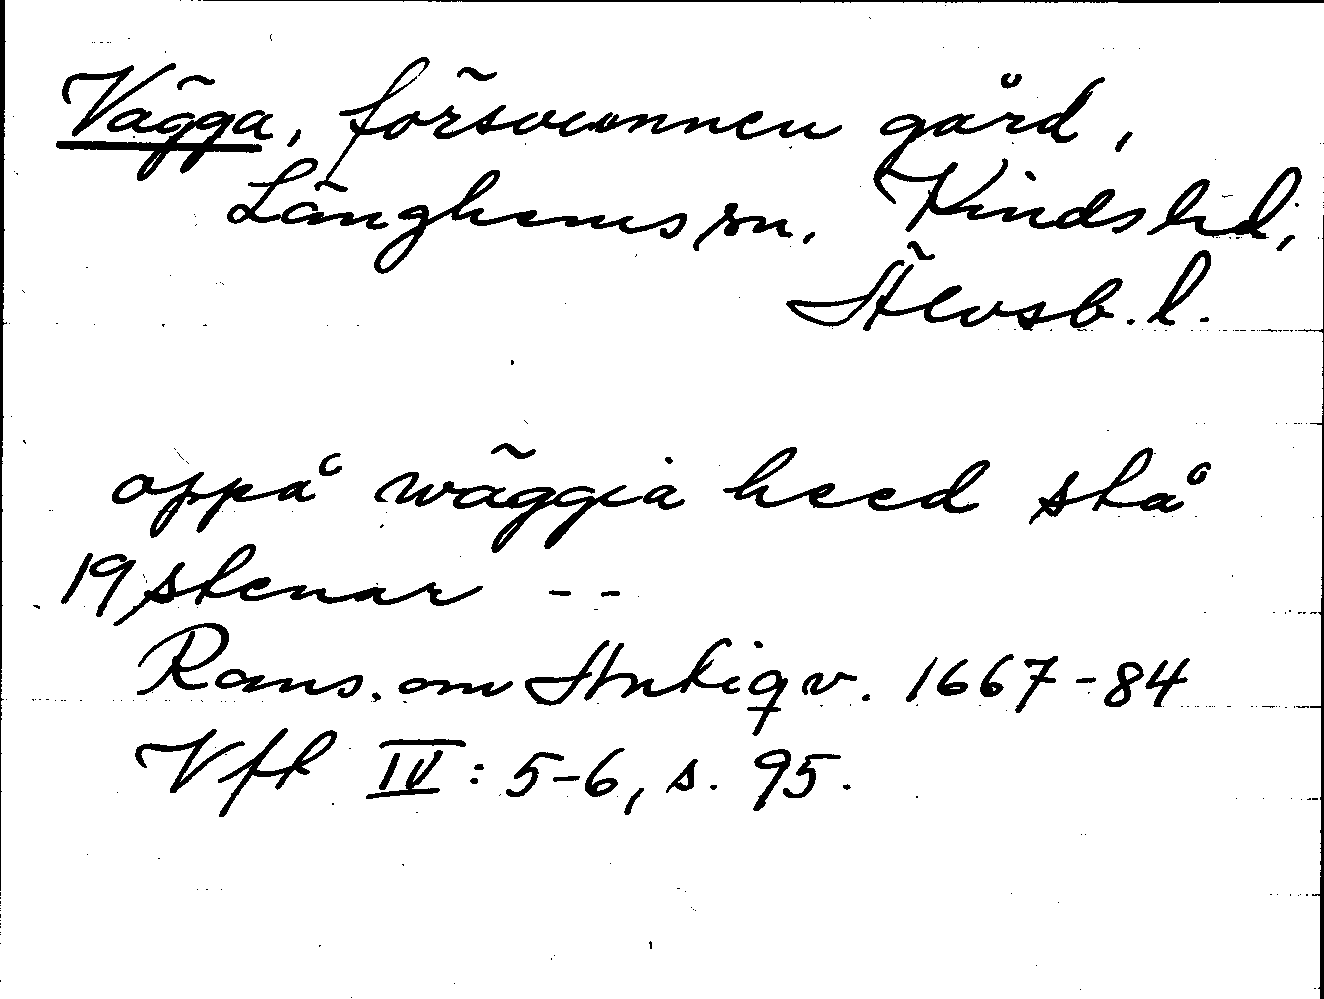 Vägga, försvunnen gård,
Länghems sn. Kinds hd,
Älvsb. l.
oppå wäggia heed stå
19 stenar --
Rans. om Antiqv. 1667-84
Vft IV: 5-6, s. 95.